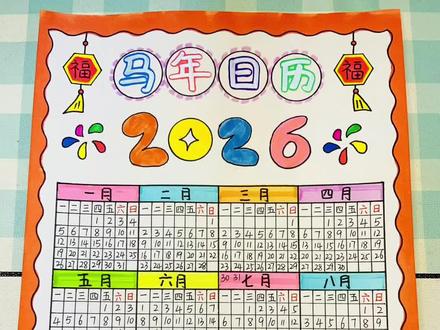 福 马年日历 福
2026
一月 二月 三月 四月
一二三四五六日 一二三四五六日 一二三四五六日 一二三四五六日
1 2 3 4 1 1 1 2 3 4 5
5 6 7 8 9 10 11 2 3 4 5 6 7 8 2 3 4 5 6 7 8 6 7 8 9 10 11 12
12 13 14 15 16 17 18 9 10 11 12 13 14 15 9 10 11 12 13 14 15 13 14 15 16 17 18 19
19 20 21 22 23 24 25 16 17 18 19 20 21 22 16 17 18 19 20 21 22 20 21 22 23 24 25 26
26 27 28 29 30 31 23 24 25 26 27 28 23 24 25 26 27 28 29 27 28 29 30
30 31
五月 六月 七月 八月
一二三四五六日 一二三四五六日 一二三四五六日 一二三四五六日
1 2 3 1 2 3 4 5 6 7 1 2 3 4 5 1 2
4 5 6 7 8 9 10 8 9 10 11 12 13 14 6 7 8 9 10 11 12 3 4 5 6 7 8 9